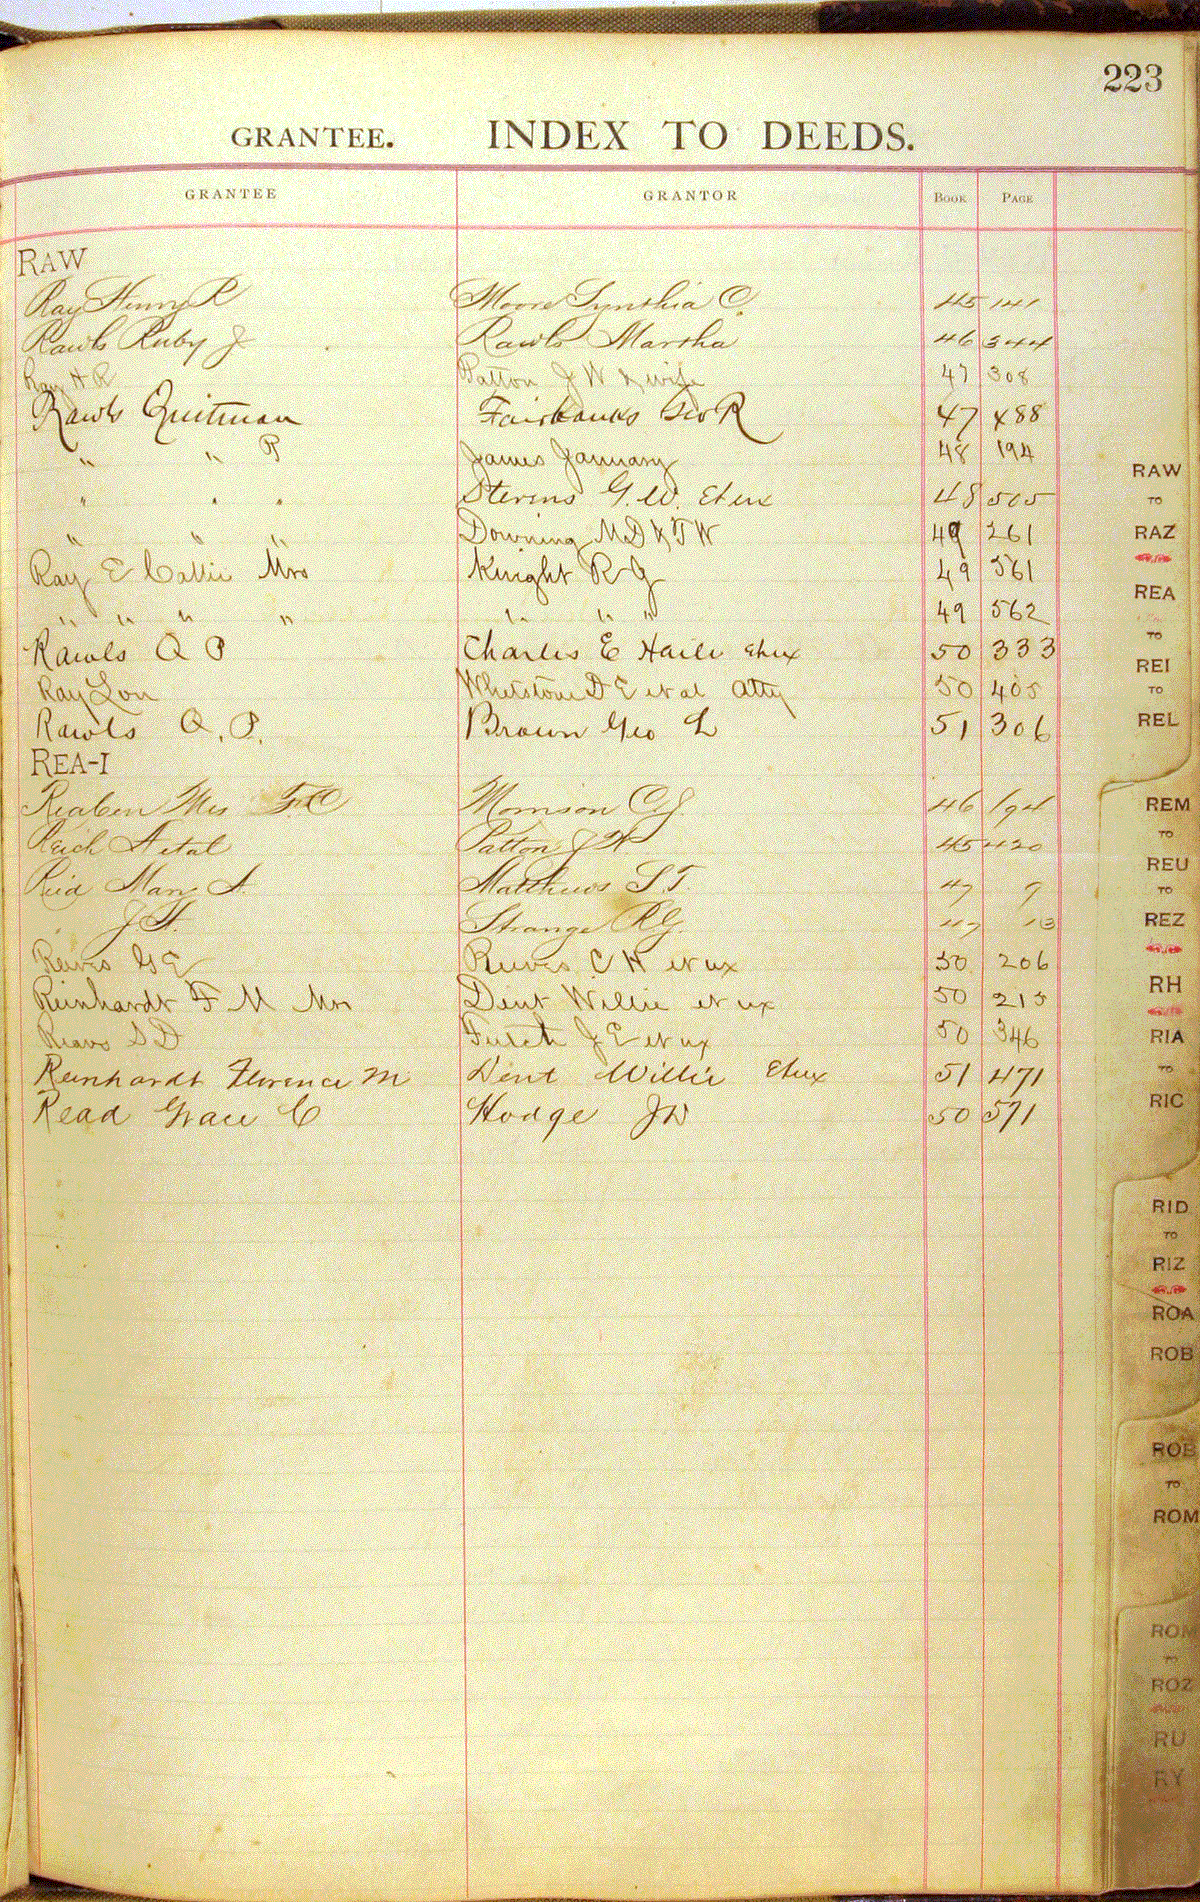 223
GRANTEE. INDEX TO DEEDS.
GRANTEE GRANTOR BOOK PAGE
RAW
Ray Henry R Moore Synthia C. 45 141
Rawls Ruby J Rawls Martha 46 344
Ray H R Patton J W & wife 47 308
Rawls Quitman Fairbanks Geo R 47 488
" " P James January 48 194
" " " Stevens G. W. Etux 48 505
" " " Downing M D & T W 49 261
Ray E Callie Mrs Knight R G 49 561
" " " " " " " 49 562
Rawls Q P Charles E Haile etux 50 333
Ray Lon Whetstone D E et al Atty 50 405
Rawls Q. P. Brown Geo L 51 306
REA-I
Mrs F. C Morrison C J. 46 194
Reich A et al Patton J W 45 420
Reid Mary A. Matthews S T. 47 9
J H. Strange R G. 47 13
Reeves G E Reeves C H et ux 50 206
Reinhardt F M Mrs Dent Willie et ux 50 215
Reavs S D Futch J E et ux 50 346
Reinhardt Florence M Dent Willie Etux 51 471
Read Grace C Hodge J W 50 571
RAW
TO
RAZ
REA
TO
REI
TO
REL
REM
TO
REU
TO
REZ
RH
RIA
TO
RIC
RID
TO
RIZ
ROA
ROB
ROB
TO
ROM
ROM
TO
ROZ
RU
RY